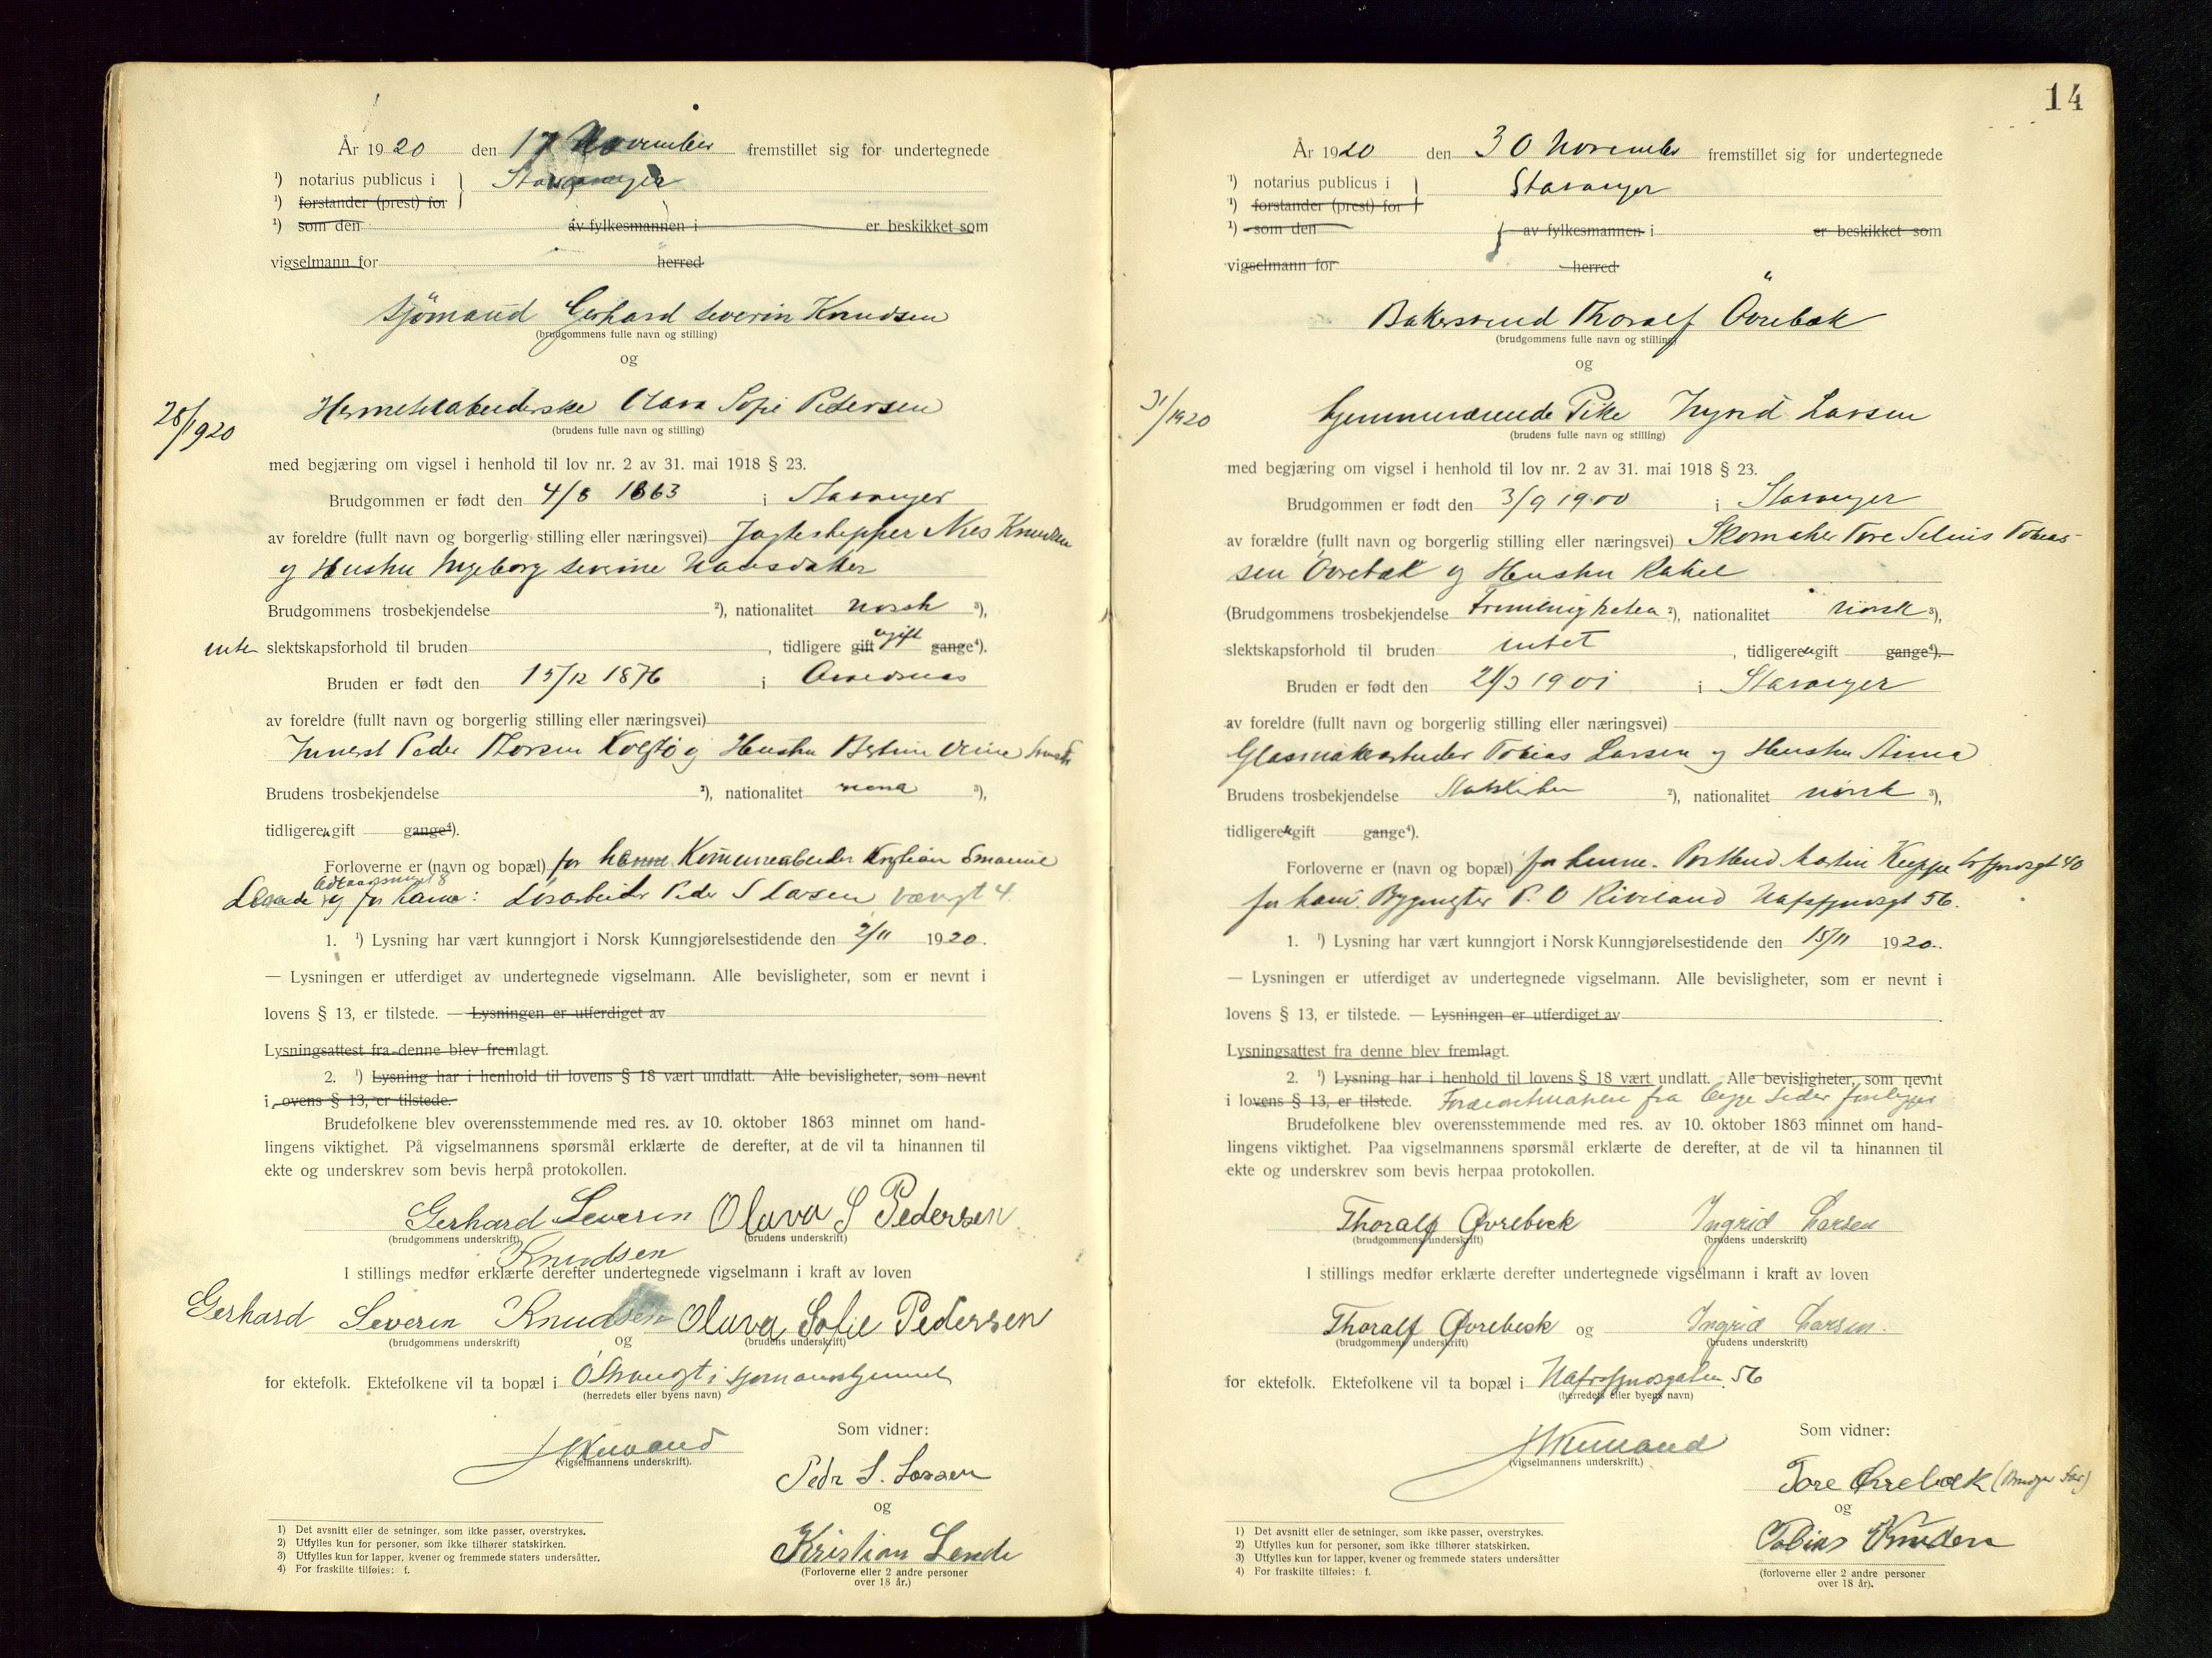 År 1920 den 17 November fremstillet sig for undertegnede
¹) notarius publicus i Stavanger
¹) forstander (prest) for
¹) som den av fylkesmannen i er beskikket som
vigselmann for herred
sjömand Gerhard Severin Knudsen
(brudgommens fulle navn og stilling)
og
28/1920
Olava Sofie Pedersen
(brudens fulle navn og stilling)
med begjæring om vigsel i henhold til lov nr. 2 av 31. mai 1918 § 23.
Brudgommen er født den 4/8 1863 i Stavanger
av foreldre (fullt navn og borgerlig stilling eller næringsvei) Jagteskipper Nils Knudsen
og Hustru Ingeborg Severine Hansdatter
Brudgommens trosbekjendelse ²), nationalitet norsk ³),
intet slektskapsforhold til bruden , tidligere gift ugift gange⁴).
Bruden er født den 15/12 1876 i
av foreldre (fullt navn og borgerlig stilling eller næringsvei)
Peder og Hustru
Brudens trosbekjendelse ²), nationalitet norsk ³),
tidligere ugift gange⁴).
Forloverne er (navn og bopæl) for henne Kommunearbeider Kristian Emanuel
Lende og for ham: Løsarbeider Peder S Larsen 4.
1. ¹) Lysning har vært kunngjort i Norsk Kunngjørelsestidende den 2/11 1920.
— Lysningen er utferdiget av undertegnede vigselmann. Alle bevisligheter, som er nevnt i
lovens § 13, er tilstede. — Lysningen er utferdiget av
Lysningsattest fra denne blev fremlagt.
2. ¹) Lysning har i henhold til lovens § 18 vært undlatt. Alle bevisligheter, som nevnt
i lovens § 13, er tilstede.
Brudefolkene blev overensstemmende med res. av 10. oktober 1863 minnet om hand-
lingens viktighet. På vigselmannens spørsmål erklærte de derefter, at de vil ta hinannen til
ekte og underskrev som bevis herpå protokollen.
Gerhard Severin Olava S Pedersen
(brudgommens underskrift) (brudens underskrift)
Knudsen
I stillings medfør erklærte derefter undertegnede vigselmann i kraft av loven
Gerhard Severin Knudsen og Olava Sofie Pedersen
(brudgommens underskrift) (brudens underskrift)
for ektefolk. Ektefolkene vil ta bopæl i
(herredets eller byens navn)
(vigselmannens underskrift).
Som vidner:
Pedr S. Larsen
og
Kristian Lende
(Forloverne eller 2 andre personer
over 18 år.)
1) Det avsnitt eller de setninger, som ikke passer, overstrykes.
2) Utfylles kun for personer, som ikke tilhører statskirken.
3) Utfylles kun for lapper, kvener og fremmede staters undersåtter.
4) For fraskilte tilføies: f.
14
År 1920 den 30 November fremstillet sig for undertegnede
¹) notarius publicus i Stavanger
¹) forstander (prest) for
¹) som den av fylkesmannen i er beskikket som
vigselmann for herred
Bakersvend Thoralf Övrebæk
(brudgommens fulle navn og stilling)
og
31/1920
hjemmeværende Pike Ingrid Larsen
(brudens fulle navn og stilling)
med begjæring om vigsel i henhold til lov nr. 2 av 31. mai 1918 § 23.
Brudgommen er født den 3/9 1900 i Stavanger
av forældre (fullt navn og borgerlig stilling eller næringsvei) Skomaker Tore Tobias-
sen Övrebæk og Hustru Rakel
(Brudgommens trosbekjendelse Frimenigheten ²), nationalitet norsk ³),
slektskapsforhold til bruden intet , tidligere ugift gange⁴).
Bruden er født den 21/3 1901 i Stavanger
av foreldre (fullt navn og borgerlig stilling eller næringsvei)
Tobias Larsen og Hustru Anna
Brudens trosbekjendelse Statskirken ²), nationalitet norsk ³),
tidligere ugift gange⁴).
Forloverne er (navn og bopæl) for henne. Postbud Martin 40
for ham. P. O Riveland Hafrsfjordsgt 56.
1. ¹) Lysning har vært kunngjort i Norsk Kunngjørelsestidende den 15/11 1920.
— Lysningen er utferdiget av undertegnede vigselmann. Alle bevisligheter, som er nevnt i
lovens § 13, er tilstede. — Lysningen er utferdiget av
Lysningsattest fra denne blev fremlagt.
2. ¹) Lysning har i henhold til lovens § 18 vært undlatt. Alle bevisligheter, som nevnt
i lovens § 13, er tilstede. fra begge sider foreligger
Brudefolkene blev overensstemmende med res. av 10. oktober 1863 minnet om hand-
lingens viktighet. Paa vigselmannens spørsmål erklærte de derefter, at de vil ta hinannen til
ekte og underskrev som bevis herpaa protokollen.
Thoralf Øvrebæk Ingrid Larsen
(brudgommens underskrift) (brudens underskrift)
I stillings medfør erklærte derefter undertegnede vigselmann i kraft av loven
Thoralf Øvrebæk og Ingrid Larsen.
(brudgommens underskrift) (brudens underskrift)
for ektefolk. Ektefolkene vil ta bopæl i Hafrsfjordsgaten 56
(herredets eller byens navn)
(vigselmannens underskrift.)
Som vidner:
Tore Øvrebæk (Brudgs Far)
og
Tobias Knudsen
(forloverne eller 2 andre personer
over 18 år).
1) Det avsnitt eller de setninger, som ikke passer, overstrykes.
2) Utfylles kun for personer, som ikke tilhører statskirken.
3) Utfylles kun for lapper, kvener og fremmede staters undersåtter
4) For fraskilte tilføies: f.